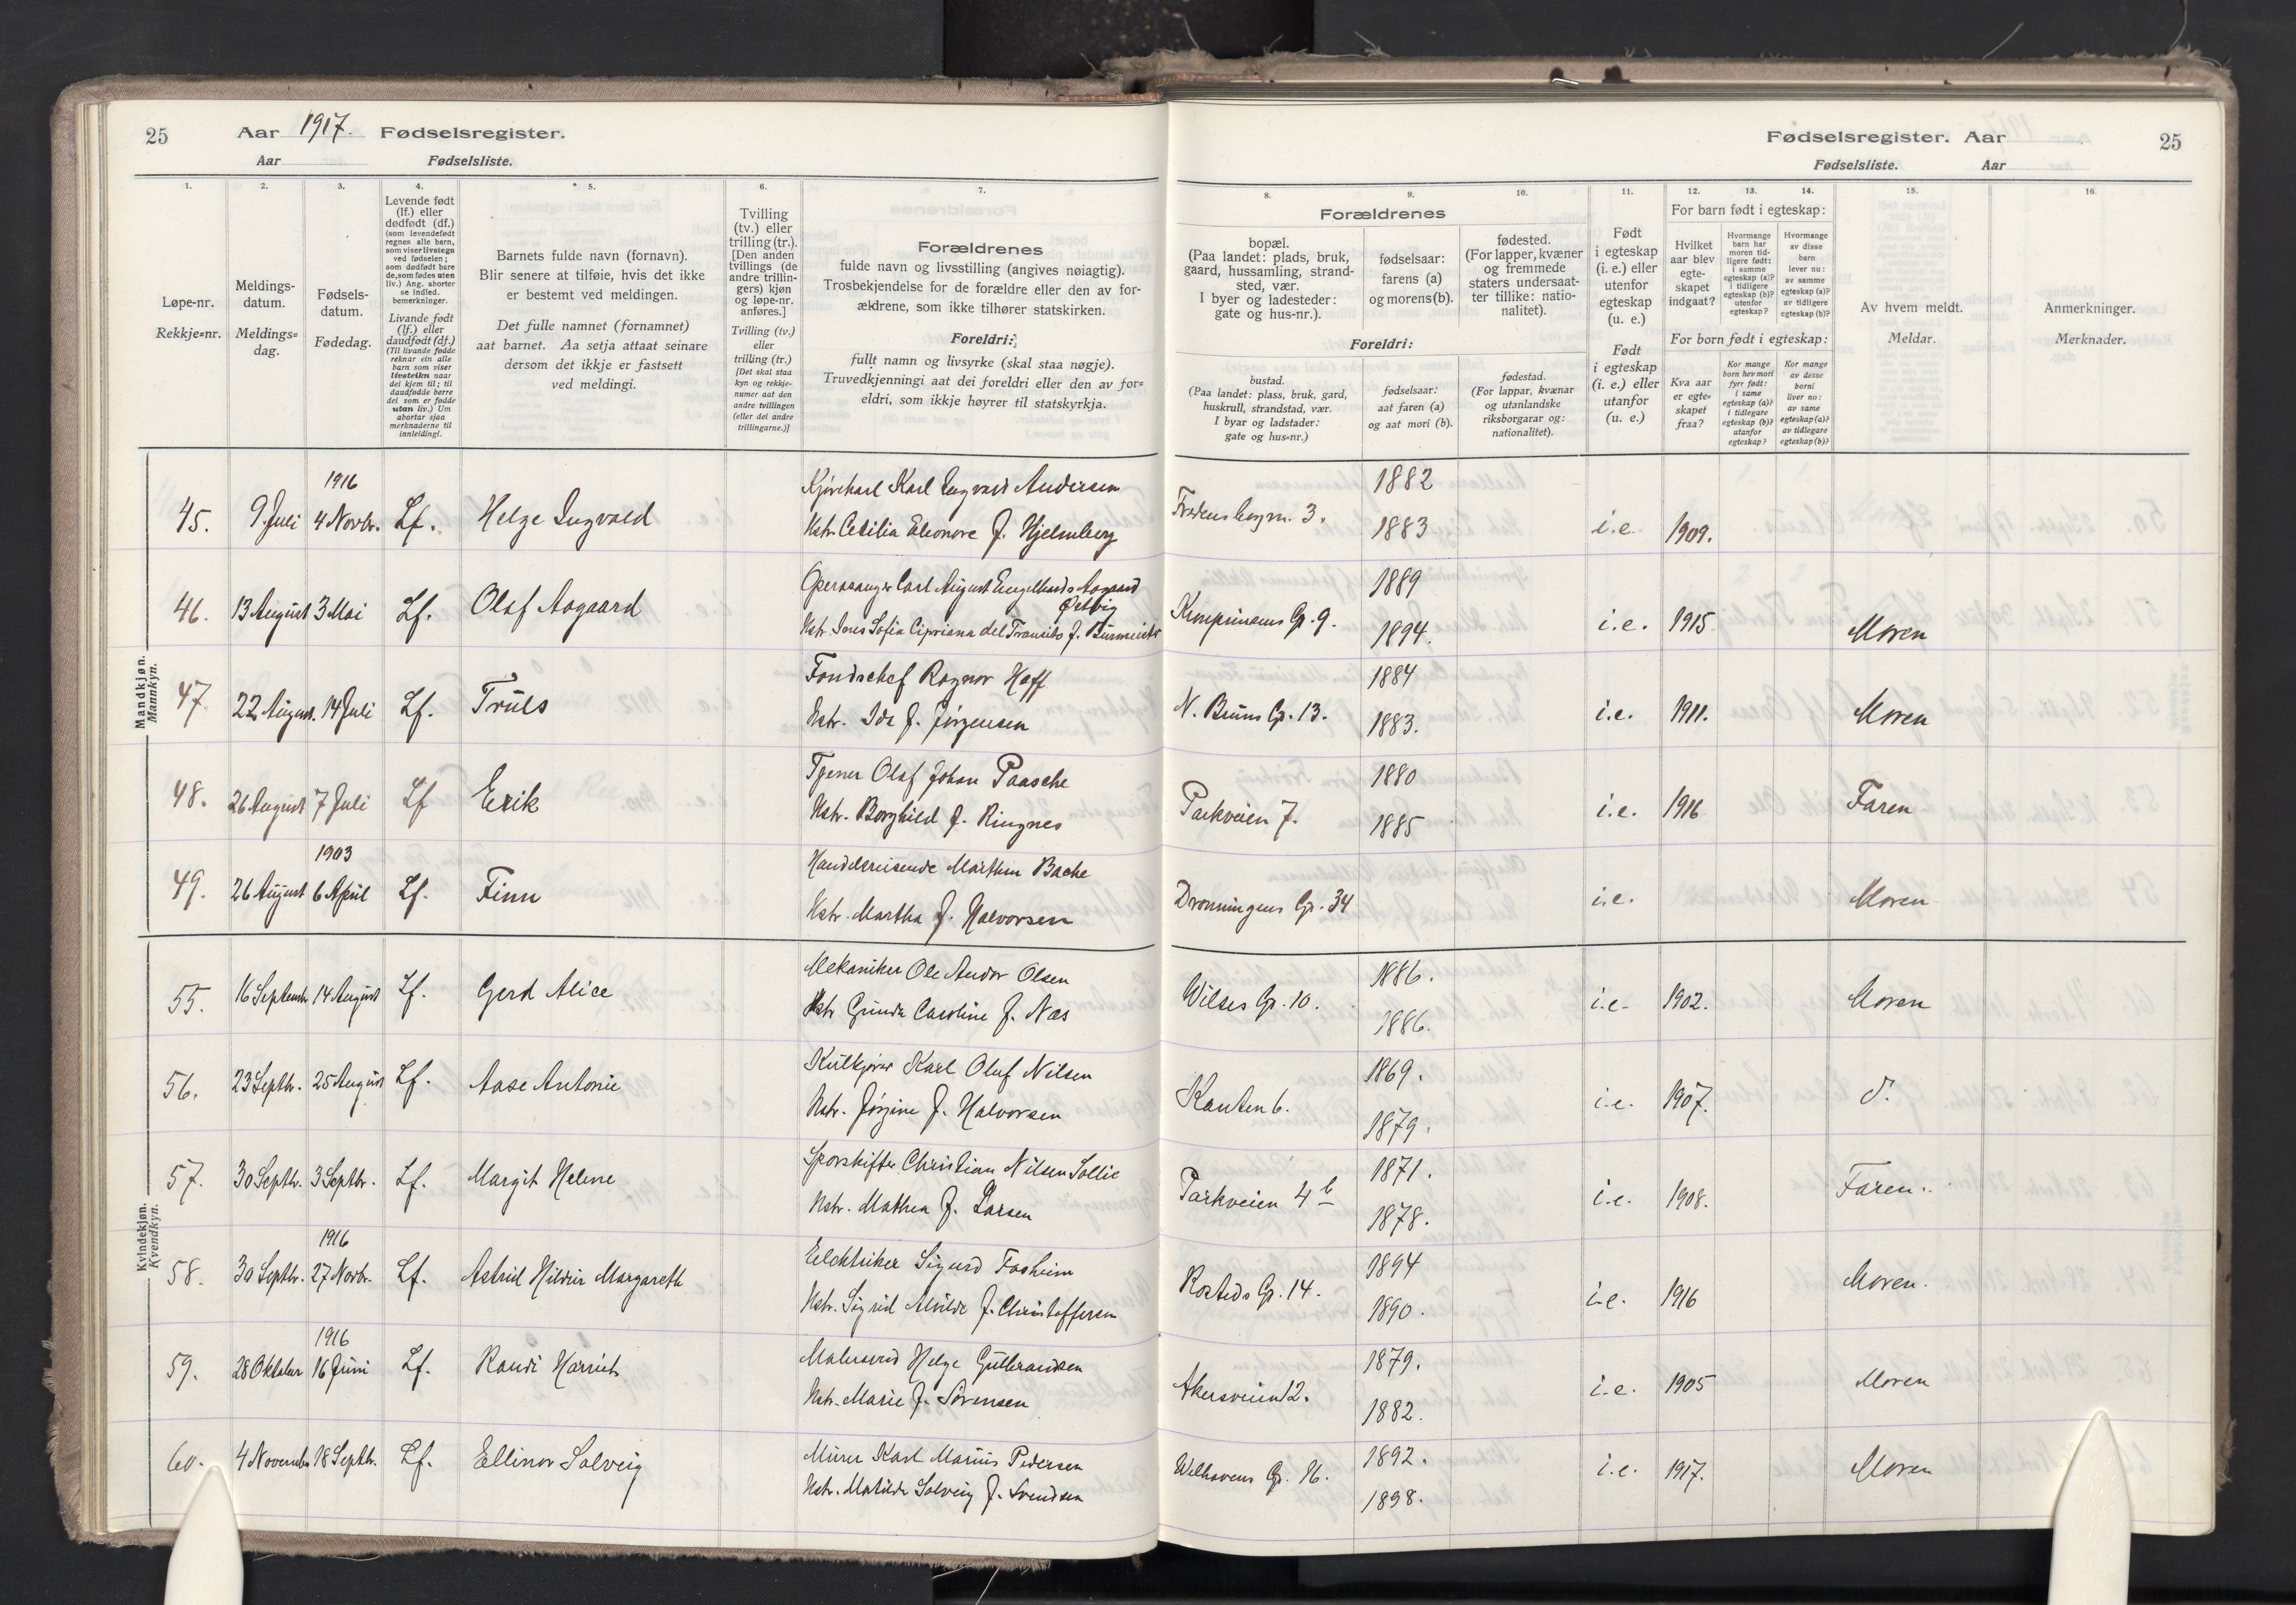 25 Aar 1917. Fødselsregister.
Aar Fødselsliste.
Fødselsregister. Aar 25
Fødselsliste. Aar
1. 2. 3. 4. 5. 6. 7. 8. 9. 10. 11. 12. 13. 14. 15. 16.
Løpe-nr.
Rekkje-nr.
Meldings-
datum.
Meldings-
dag.
Fødsels-
datum.
Fødedag.
Levende født
(lf.) eller
dødfødt (df.)
(som levendefødt
regnes alle barn,
som viser livstegn
ved fødselen;
som dødfødt bare
de, som fødes uten
liv.) Ang. aborter
se indled.
bemerkninger.
Livande født
(lf.) eller
daudfødt (df.)
(Til livande fødde
reknar ein alle
barn som viser
livsteikn naar
dei kjem til; til
daudfødde berre
dei som er fødde
utan liv.) Um
abortar sjaa
merknaderne til
innleidingi.
Barnets fulde navn (fornavn).
Blir senere at tilføie, hvis det ikke
er bestemt ved meldingen.
Det fulle namnet (fornamnet)
aat barnet. Aa setja attaat seinare
dersom det ikkje er fastsett
ved meldingi.
Tvilling
(tv.) eller
trilling (tr.).
[Den anden
tvillings (de
andre trillin-
gers) kjøn
og løpe-nr.
anføres.]
Tvilling (tv.)
eller
trilling (tr.)
[Det skal staa
kyn og rekkje-
numer aat den
andre tvillingen
(eller dei andre
trillingarne.)]
Forældrenes
fulde navn og livsstilling (angives nøiagtig).
Trosbekjendelse for de forældre eller den av for-
ældrene, som ikke tilhører statskirken.
Foreldri:
fullt namn og livsyrke (skal staa nøgje).
Truvedkjenningi aat dei foreldri eller den av for-
eldri, som ikkje høyrer til statskyrkja.
Forældrenes
bopæl.
(Paa landet: plads, bruk,
gaard, hussamling, strand-
sted, vær.
I byer og ladesteder:
gate og hus-nr.).
fødselsaar:
farens (a)
og morens (b).
fødested.
(For lapper, kvæner
og fremmede
staters undersaat-
ter tillike: natio-
nalitet).
Foreldri:
bustad.
(Paa landet: plass, bruk, gard,
huskrull, strandstad, vær.
I byar og ladstader:
gate og hus-nr.)
fødselsaar:
aat faren (a)
og aat mori (b).
fødestad.
(For lappar, kvænar
og utanlandske
riksborgarar og:
nationalitet).
Født
i egteskap
(i. e.) eller
utenfor
egteskap
(u. e.)
Født
i egteskap
(i. e.) eller
utanfor
(u. e.)
For barn født i egteskap:
Hvilket
aar blev
egte-
skapet
indgaat?
Hvormange
barn har
moren tid-
ligere født:
i samme
egteskap (a)?
i tidligere
egteskap (b)?
utenfor
egteskap?
Hvormange
av disse
barn
lever nu:
av samme
egteskap (a)?
av tidligere
egteskap (b)?
For born født i egteskap:
Kva aar
er egte-
skapet
fraa?
Kor mange
born hev mori
fyrr født:
i same
egteskap (a)?
i tidlegare
egteskap (b)?
utanfor
egteskap?
Kor mange
av desse
borni
liver no:
av same
egteskap (a)?
av tidlegare
egteskap (b)?
Av hvem meldt.
Meldar.
Anmerkninger.
Merknader.
Mandkjøn.
Mannkyn.
1916 Kjørekarl Karl Ingvard Andersen 1882
45. 9. Juli 4 Novbr. Lf. Helge Ingvald Hstr. Cecilia Eleonore f. Hjelmberg 1883 i.e. 1909.
Operasanger Carl August Engelhardt Aagaard 1889
Østvig
46. 13 August 3 Mai Lf. Olaf Aagaard Hstr. Ines Sofia Cipriana del Transito f. 1894. i.e. 1915 Moren
Fondschef Ragnar Hoff 1884
47. 22 August. 14 Juli Lf. Truls Hstr. Ida f. Jørgensen N. Bruns Gt. 13. 1883. i.e. 1911. Moren
Tjener Olaf Johan Paasche 1880
48. 26 August 7 Juli Lf Erik Hstr. Borghild f. Ringnes Parkveien 7. 1885 i.e. 1916 Faren
1903 Handelsreisende Marthin Bache
49. 26 August 6 April Lf. Finn Hstr. Martha f. Halvorsen Dronningens Gt. 34 i.e. Moren
Kvindekjøn.
Kvendkyn.
Mekaniker Ole Andor Olsen 1886.
55. 16 Septembr 14 August Lf. Gerd Alice Hstr Gunda Caroline f. Næs Wilses Gt. 10. 1886. i.e. 1902. Moren
Kulkjører Karl Oluf Nilsen 1869.
56. 23 Septbr. 25 August Lf. Aase Antonie Hstr. Jørgine f. Halvorsen Kanten 6. 1879. i.e. 1907. d.
Sporskifter Christian Nilsen Sollie 1871.
57. 30 Septbr. 3 Septbr. Lf. Margit Helene Hstr. Mathea f. Larsen Parkveien 4 b 1878. i.e. 1908. Faren.
1916 Elektriker Sigurd Fosheim 1894
58. 30 Septbr. 27 Novbr. Lf. Astrid Hildur Margareth Hstr. Sigrid Alvilde f. Christoffersen Rosteds Gt. 14. 1890. i.e. 1916 Moren.
1916 Malersvend Helge Gulbrandsen 1879.
59. 28 Oktober 16 Juni Lf. Randi Harriet Hstr. Marie f. Sørensen Akersveien 12. 1882. i.e. 1905 Moren
Murer Karl Marius Pedersen 1892.
60. 4 November 18 Septbr. Lf. Ellinor Solveig Hstr. Matilde Solveig f. Svendsen Welhavens Gt. 16. 1898. i.e. 1917. Moren